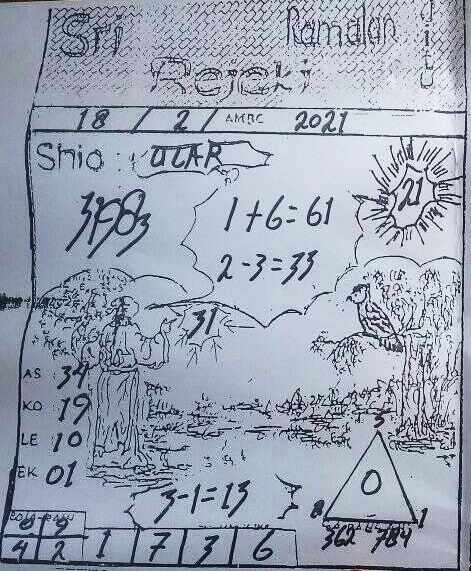 Sri Ramalan Jitu
Rejeki
18 / 2 / AMBC 2021
Shio : ULAR
1+6=61
21
2-3=33
31
AS 34
KO 19
LE 10
EK 01
5
0
8 1
3-1=13
362 784
9 9
4 2 1 7 3 6